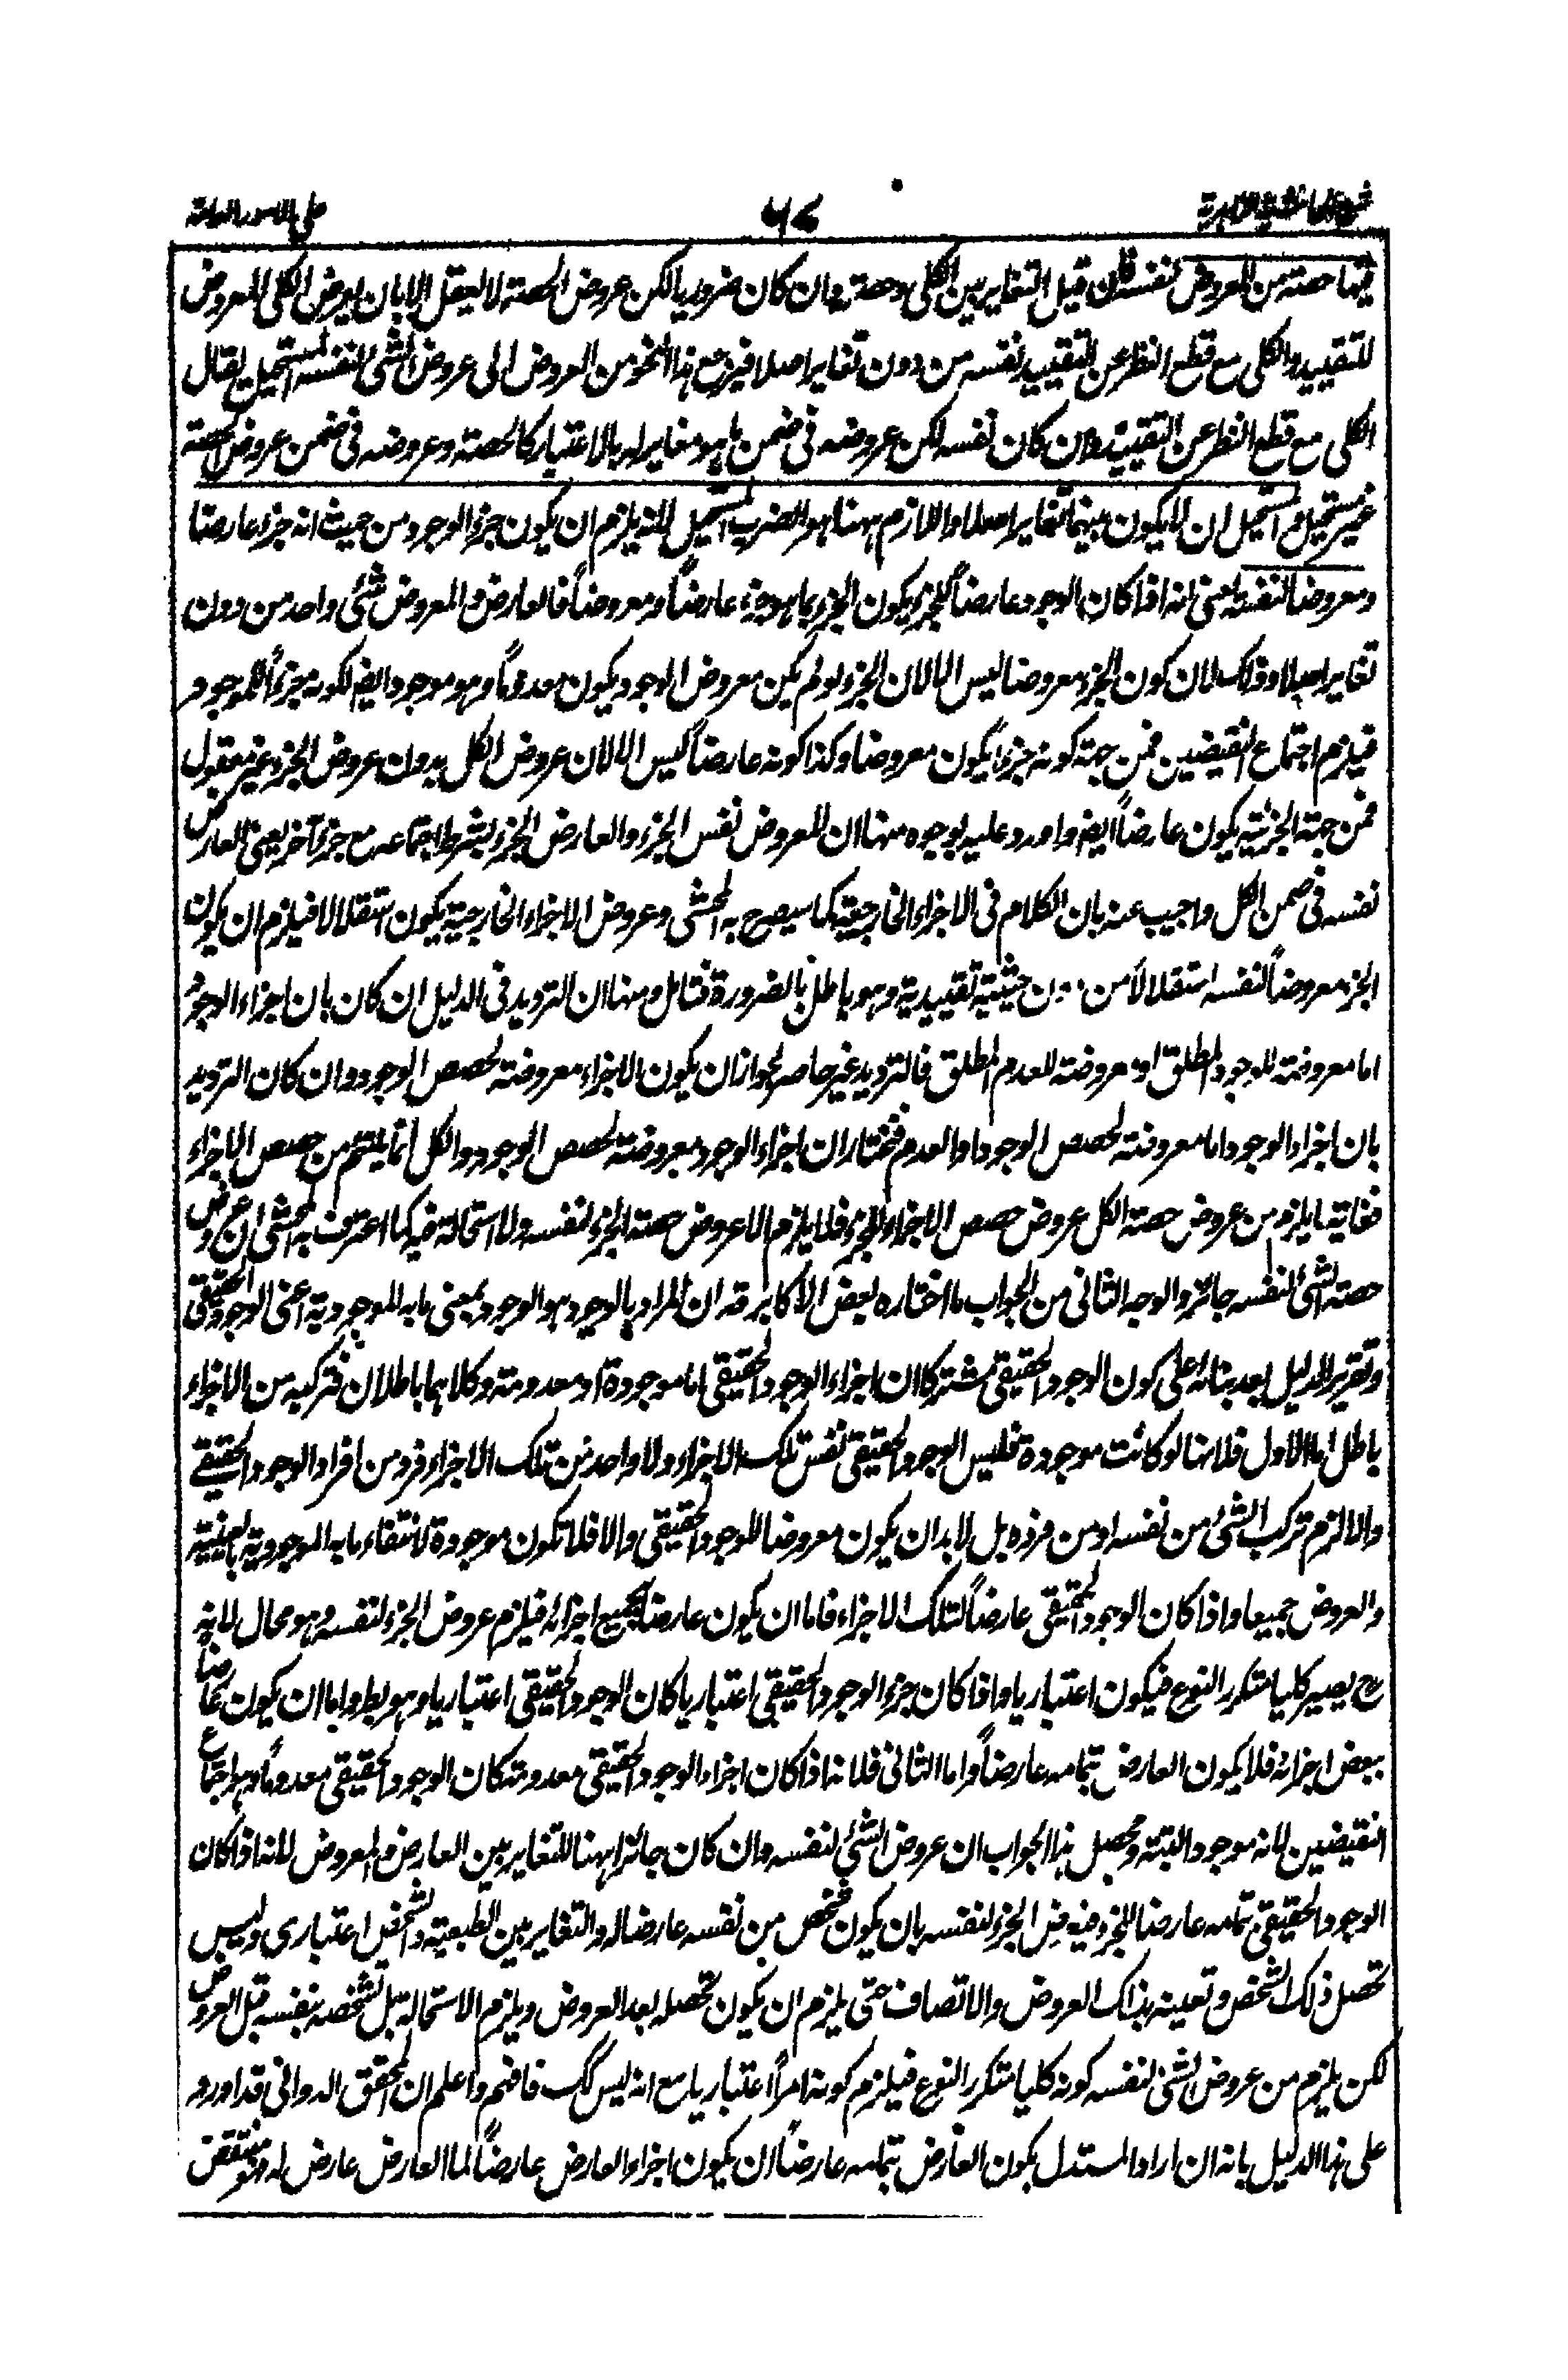 ٦٧
فيها حصته من المعروض لنفسه فان قيل التغاير بين الكلي وحصته وان كان ضروريا لكن عروض الحصة لا يعقل الا بان يعرض الكلي المعروض
للتقييد والكلي مع قطع النظر عن التقييد نفسه من دون تغاير اصلا فيرجع هذا النحو من العروض الى عروض الشئ لنفسه المستحيل يقال
الكلي مع قطع النظر عن التقييد وان كان نفسه لكن عروضه في ضمن ما هو مغاير له بالاعتبار كالحصة وعروضه في ضمن عروض الحصة
غير مستحيل والمستحيل ان لا يكون بينهما تغاير اصلا واللازم ههنا هو الضرب المستحيل لانه يلزم ان يكون جزء الوجود من حيث انه جزء عارضا
ومعروضا لنفسه يعني انه اذا كان الوجود عارضاً للجزء يكون الجزء بما هو جزء عارضاً ومعروضاً فالعارض والمعروض شئ واحد من دون
تغاير اصلا وذلك لان كون الجزء معروضا ليس الا لان الجزء لو لم يكن معروض الوجود يكون معدوماً وهو موجود ايضا لكونه جزءاً للموجود
فيلزم اجتماع النقيضين فمن جهة كونه جزءا يكون معروضا وكذا كونه عارضاً ليس الا لان عروض الكل بدون عروض الجزء غير معقول
فمن جهة الجزئية يكون عارضاً ايضا واورد عليه بوجوه منها ان المعروض نفس الجزء والعارض الجزء بشرط اجتماعه مع جزء آخر يعني العارض
نفسه في ضمن الكل واجيب عنه بان الكلام في الاجزاء الخارجية كما سيصرح به المحشي وعروض الاجزاء الخارجية يكون استقلالا فيلزم ان يكون
الجزء معروضاً لنفسه استقلالاً من دون حيثية تقييدية وهو باطل بالضرورة فتامل ومنها ان الترديد في الدليل ان كان بان اجزاء الوجود
اما معروضة للوجود المطلق او معروضة للعدم المطلق فالترديد غير حاصر لجواز ان يكون الاجزاء معروضة لحصص الوجود وان كان الترديد
بان اجزاء الوجود اما معروضة لحصص الوجود او العدم فنختار ان اجزاء الوجود معروضة لحصص الوجود والكل انما يلتئم من حصص الاجزاء
فغاية ما يلزم من عروض حصة الكل عروض حصص الاجزاء للجزء فلا يلزم الا عروض حصة الجزء لنفسه ولا استحالة فيه كما اعترف به المحشي ان عروض
حصة الشئ لنفسه جائز والوجه الثاني من الجواب ما اختاره بعض الاكابر قده ان المراد بالوجود هو الوجود بمعنى ما به الموجودية اعني الوجود الحقيقي
وتقرير الدليل بعد بنائه على كون الوجود الحقيقي مشتركا ان اجزاء الوجود الحقيقي اما موجودة او معدومة وكلاهما باطلان فتركبه من الاجزاء
باطل اما الاول فلانها لو كانت موجودة فليس الوجود الحقيقي نفس تلك الاجزاء ولا واحد من تلك الاجزاء فرد من افراد الوجود الحقيقي
والا لزم تركب الشئ من نفسه او من فرده بل لابد ان يكون معروضا للوجود الحقيقي والا فلا تكون موجودة لانتفاء ما به الموجودية بالعينية
والعروض جميعا واذا كان الوجود الحقيقي عارضاً لتلك الاجزاء فاما ان يكون عارضا بجميع اجزائه فيلزم عروض الجزء لنفسه وهو محال لانه
ح يصير كليا متكرر النوع فيكون اعتباريا واذا كان جزء الوجود الحقيقي اعتباريا كان الوجود الحقيقي اعتباريا وهو بط واما ان يكون عارضا
ببعض اجزائه فلا يكون العارض بتمامه عارضاً واما الثاني فلانه اذا كان اجزاء الوجود الحقيقي معدومة كان الوجود الحقيقي معدوماً وهو اجتماع
النقيضين لانه موجود البتة ومحصل هذا الجواب ان عروض الشئ لنفسه وان كان جائزا ههنا للتغاير بين العارض والمعروض لانه اذا كان
الوجود الحقيقي بتمامه عارضا للجزء فيعرض الجزء لنفسه بان يكون شخص من نفسه عارضا له والتغاير بين الطبيعة والشخص اعتباري وليس
تحصل ذلك الشخص وتعينه بذلك العروض والاتصاف حتى يلزم ان يكون تحصله بعد العروض ويلزم الاستحالة بل تشخصه بنفسه قبل العروض
لكن يلزم من عروض الشئ لنفسه كونه كليا متكرر النوع فيلزم كونه امراً اعتباريا مع انه ليس كك فافهم واعلم ان المحقق الدواني قد اورد
على هذا الدليل بانه ان اراد المستدل بكون العارض بتمامه عارضاً ان يكون اجزاء العارض عارضاً لما العارض عارض له فهو منتقض